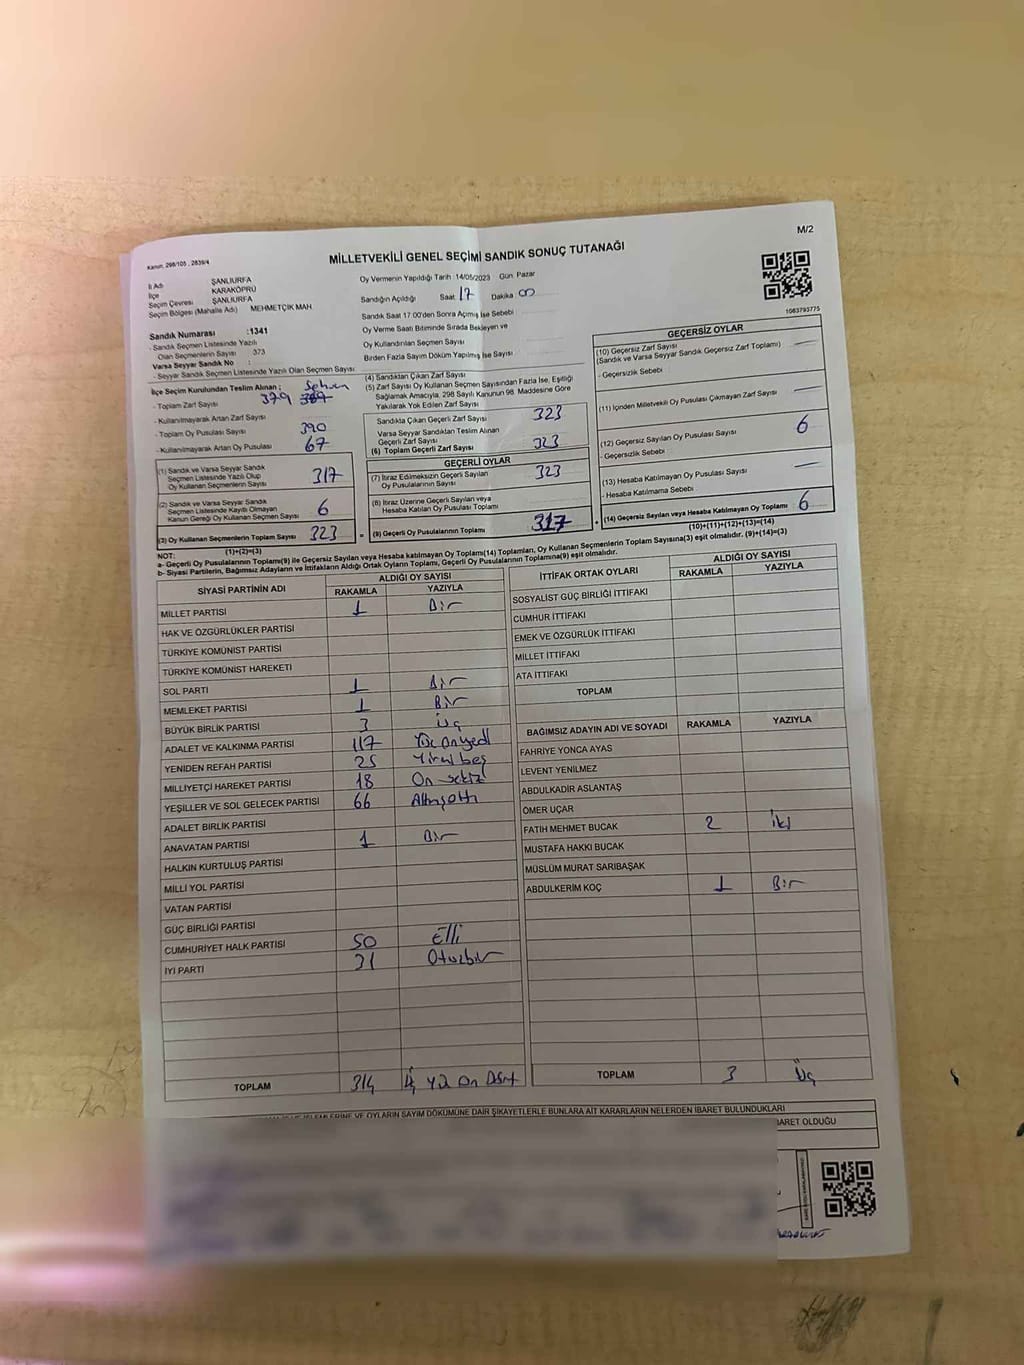 M/2
Kanun: 298/105 , 2839/4
MİLLETVEKİLİ GENEL SEÇİMİ SANDIK SONUÇ TUTANAĞI
İl Adı ŞANLIURFA
İlçe KARAKÖPRÜ
Seçim Çevresi ŞANLIURFA
Seçim Bölgesi (Mahalle Adı) MEHMETÇİK MAH
Oy Vermenin Yapıldığı Tarih :14/05/2023 Gün: Pazar
Sandığın Açıldığı Saat 17 Dakika 00
Sandık Saat 17.00'den Sonra Açımış İse Sebebi
Oy Verme Saati Bitiminde Sırada Bekleyen ve
Oy Kullandırılan Seçmen Sayısı
Birden Fazla Sayım Döküm Yapılmış İse Sayısı
1083793775
Sandık Numarası :1341
- Sandık Seçmen Listesinde Yazılı
Olan Seçmenlerin Sayısı 373
Varsa Seyyar Sandık No :
- Seyyar Sandık Seçmen Listesinde Yazılı Olan Seçmen Sayısı
İlçe Seçim Kurulundan Teslim Alınan :
- Toplam Zarf Sayısı 379
- Kullanılmayarak Artan Zarf Sayısı
- Toplam Oy Pusulası Sayısı 390
- Kullanılmayarak Artan Oy Pusulası 67
(1) Sandık ve Varsa Seyyar Sandık
Seçmen Listesinde Yazılı Olup
Oy Kullanan Seçmenlerin Sayısı 317
(2) Sandık ve Varsa Seyyar Sandık
Seçmen Listesinde Kayıtlı Olmayan
Kanun Gereği Oy Kullanan Seçmen Sayısı 6
(3) Oy Kullanan Seçmenlerin Toplam Sayısı 323
(1)+(2)=(3)
(4) Sandıktan Çıkan Zarf Sayısı
(5) Zarf Sayısı Oy Kullanan Seçmen Sayısından Fazla İse, Eşitliği
Sağlamak Amacıyla, 298 Sayılı Kanunun 98. Maddesine Göre
Yakılarak Yok Edilen Zarf Sayısı
Sandıkta Çıkan Geçerli Zarf Sayısı 323
Varsa Seyyar Sandıktan Teslim Alınan
Geçerli Zarf Sayısı
(6) Toplam Geçerli Zarf Sayısı 323
GEÇERLİ OYLAR
(7) İtiraz Edilmeksizin Geçerli Sayılan
Oy Pusulalarının Sayısı 323
(8) İtiraz Üzerine Geçerli Sayılan veya
Hesaba Katılan Oy Pusulası Toplamı
(9) Geçerli Oy Pusulalarının Toplamı 317
GEÇERSİZ OYLAR
(10) Geçersiz Zarf Sayısı
(Sandık ve Varsa Seyyar Sandık Geçersiz Zarf Toplamı) —
- Geçersizlik Sebebi
(11) İçinden Milletvekili Oy Pusulası Çıkmayan Zarf Sayısı —
(12) Geçersiz Sayılan Oy Pusulası Sayısı 6
- Geçersizlik Sebebi
(13) Hesaba Katılmayan Oy Pusulası Sayısı —
- Hesaba Katılmama Sebebi
(14) Geçersiz Sayılan veya Hesaba Katılmayan Oy Toplamı 6
(10)+(11)+(12)+(13)=(14)
NOT:
a- Geçerli Oy Pusulalarının Toplamı(9) ile Geçersiz Sayılan veya Hesaba katılmayan Oy Toplamı(14) Toplamları, Oy Kullanan Seçmenlerin Toplam Sayısına(3) eşit olmalıdır. (9)+(14)=(3)
b- Siyasi Partilerin, Bağımsız Adayların ve İttifakların Aldığı Ortak Oyların Toplamı, Geçerli Oy Pusulalarının Toplamına(9) eşit olmalıdır.
SİYASİ PARTİNİN ADI ALDIĞI OY SAYISI
RAKAMLA YAZIYLA
MİLLET PARTİSİ 1 Bir
HAK VE ÖZGÜRLÜKLER PARTİSİ
TÜRKİYE KOMÜNİST PARTİSİ
TÜRKİYE KOMÜNİST HAREKETİ
SOL PARTİ 1 Bir
MEMLEKET PARTİSİ 1 Bir
BÜYÜK BİRLİK PARTİSİ 3 üç
ADALET VE KALKINMA PARTİSİ 117 Yüz onyedi
YENİDEN REFAH PARTİSİ 25 Yirmi beş
MİLLİYETÇİ HAREKET PARTİSİ 18 On sekiz
YEŞİLLER VE SOL GELECEK PARTİSİ 66 Altmışaltı
ADALET BİRLİK PARTİSİ
ANAVATAN PARTİSİ 1 Bir
HALKIN KURTULUŞ PARTİSİ
MİLLİ YOL PARTİSİ
VATAN PARTİSİ
GÜÇ BİRLİĞİ PARTİSİ
CUMHURİYET HALK PARTİSİ 50 Elli
İYİ PARTİ 31 Otuzbir
TOPLAM 314 Üç yüz On Dört
İTTİFAK ORTAK OYLARI ALDIĞI OY SAYISI
RAKAMLA YAZIYLA
SOSYALİST GÜÇ BİRLİĞİ İTTİFAKI
CUMHUR İTTİFAKI
EMEK VE ÖZGÜRLÜK İTTİFAKI
MİLLET İTTİFAKI
ATA İTTİFAKI
TOPLAM
BAĞIMSIZ ADAYIN ADI VE SOYADI RAKAMLA YAZIYLA
FAHRİYE YONCA AYAS
LEVENT YENİLMEZ
ABDULKADİR ASLANTAŞ
ÖMER UÇAR
FATİH MEHMET BUCAK 2 iki
MUSTAFA HAKKI BUCAK
MÜSLÜM MURAT SARIBAŞAK
ABDULKERİM KOÇ 1 Bir
TOPLAM 3 Üç
İŞLEMLERİNE VE OYLARIN SAYIM DÖKÜMÜNE DAİR ŞİKAYETLERLE BUNLARA AİT KARARLARIN NELERDEN İBARET BULUNDUKLARI
BARET OLDUĞU